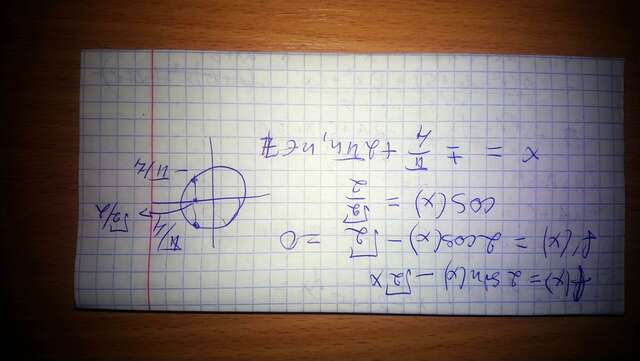 f(x) = 2 sin(x) − √2 x
f'(x) = 2cos(x) − √2 = 0
cos(x) = √2/2
x = ± π/4 + 2πn, n ∈ Z
π/4
√2/2
-π/4